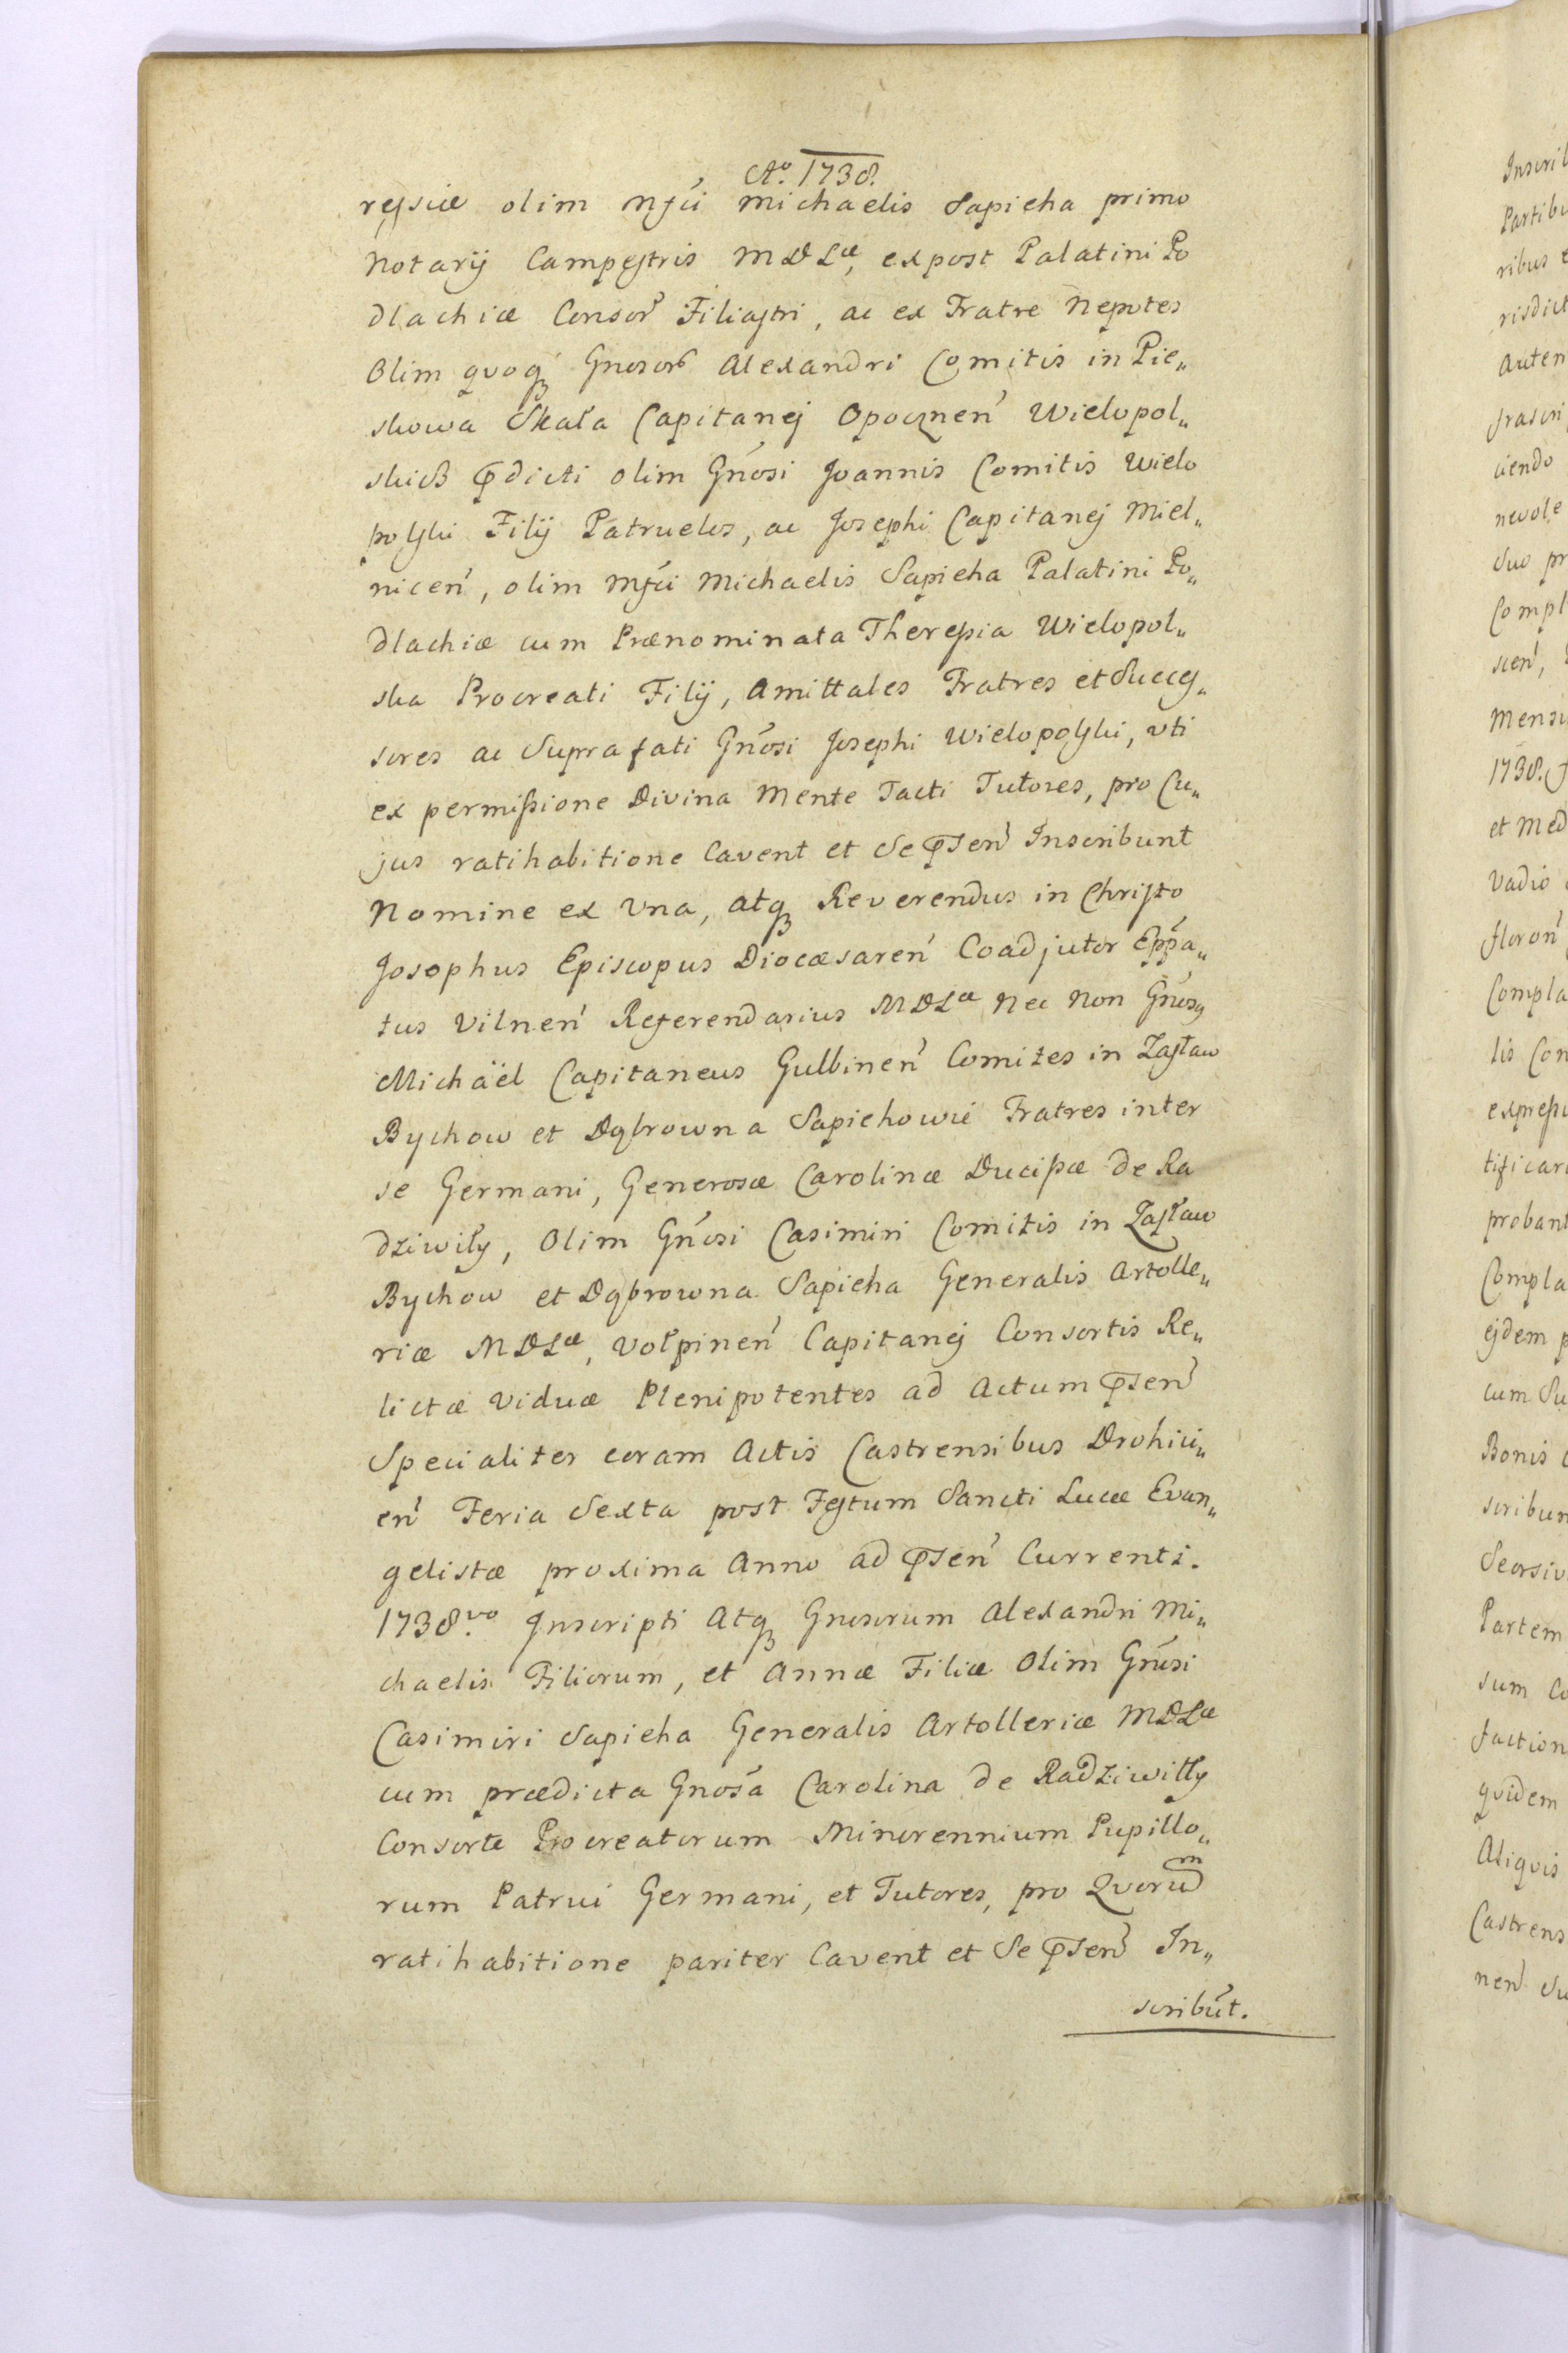 Aº. 1738.
ressiæ olim Mfci Michaelis Sapieha primo
Notarij Campestris MDLæ, expost Palatini Po
dlachiæ Consor Filiastri, ac ex Fratre Nepotes
Olim quoq Gnosor Alexandri Comitis in Pie„
skowa Skała Capitanej Opocznen Wielopol„
skich prdicti olim Gnosi Joannis Comitis Wielo
polski Filij Patrueles, ac Josephi Capitanej Miel„
nicen, olim Mfci Michaelis Sapieha Palatini Po„
dlachiæ cum Prænominata Theressia Wielopol„
ska Procreati Filij, Amittales Fratres et Succes„
sores ac Suprafati Gnosi Josephi Wielopolski, vti
ex permissione Divina Mente Tacti Tutores, pro Cu„
jus ratihabitione Cavent et Se prsen Inscribunt
Nomine ex Vna, atq Reverendus in Christo
Josephus Episcopus Diocæsaren Coadjutor Eppa„
tus Vilnen Referendarius MDLæ Nec Non Gnosq
Michaël Capitaneus Gulbinen Comites in Zasław
Bychow et Dąbrowna Sapiehowie Fratres inter
se Germani, Generosæ Carolinæ Ducissæ de Ra
dziwiły, Olim Gnosi Casimiri Comitis in Zasław
Bychow et Dąbrowna Sapieha Generalis Artolle„
riæ MDLæ, Volpinen Capitanej Consortis Re„
lictæ Viduæ Plenipotentes ad Actum prsen
Specialiter coram Actis Castrensibus Drohici„
en Feria Sexta post Festum Sancti Lucæ Evan„
gelistæ proxima Anno ad prsen Currenti.
1738vo. Inscripti Atq Gnosorum Alexandri Mi„
chaelis Filiorum, et Annæ Filiæ Olim Gnosi
Casimiri Sapieha Generalis Artolleriæ MDLæ
cum prædicta Gnosa Carolina de Radziwiłły
Consorte Procreatorum Minorennium Pupillo„
rum Patrui Germani, et Tutores, pro Quorum
ratihabitione pariter Cavent et Se prsen In„
scribut.
Partibu
ribus
risdict
Auten
ciendo
nevole
Suo pr
Compl
Mensi
1738.
et Med
Vadio
floron
Compla
lis Con
expressi
tificar
probant
Compla
ejdem p
cum Su
Bonis
scribun
Seorsiv
Partem
sum Co
faction
quidem
Aliquis
Castrens
nen Su